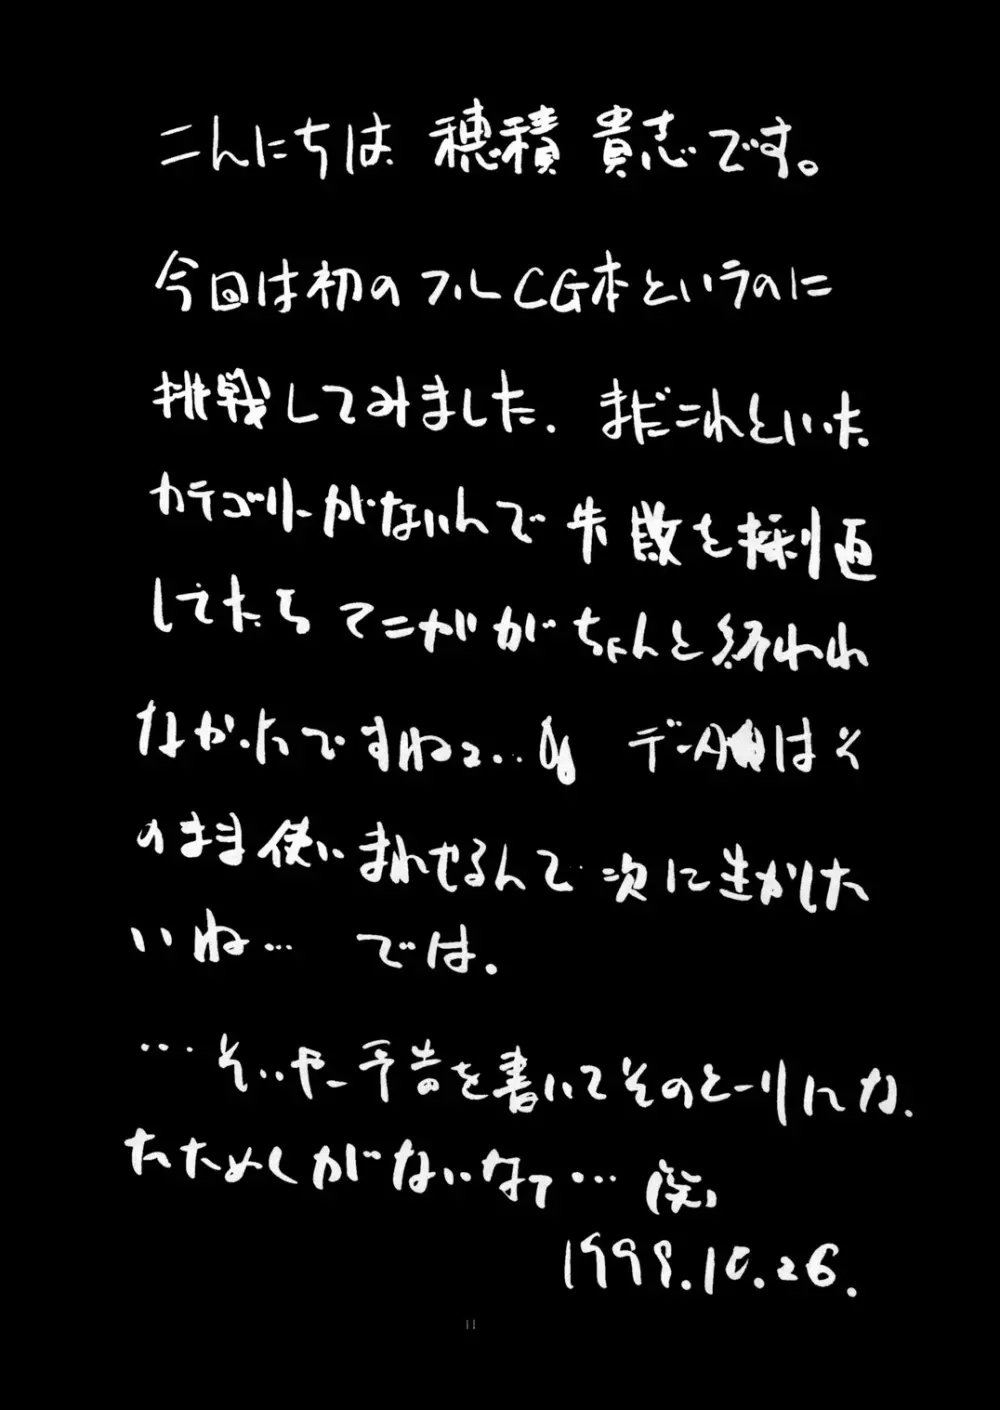 こんにちは 穂積 貴志です。
今回は初のフルCG本というのに
挑戦してみました. まだこれといった
カテゴリーがないんで 失敗を採り返
してたら マニがが ちょんと 終われ
なかったですねェ… データは そ
のまま 使いまわせるんで 次に生かした
いね… では.
…そいやー予告を書いてそのとーりにな.
たためしがないなァ… (笑)
1999.10.26.
11